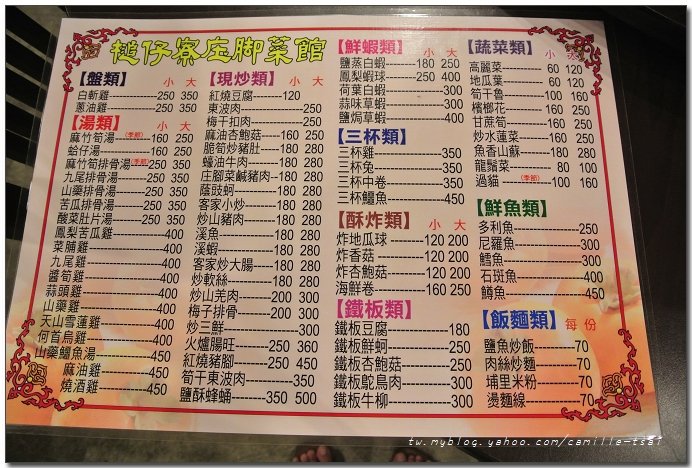 槌仔寮庄腳菜館
【盤類】 小 大
白斬雞 250 350
蔥油雞 250 350
【湯類】 小 大
麻竹筍湯(季節) 160 250
蛤仔湯 160 250
麻竹筍排骨湯(季節) 250 350
九尾排骨湯 250 350
山藥排骨湯 250 350
苦瓜排骨湯 250 350
酸菜肚片湯 250 350
鳳梨苦瓜雞 400
菜脯雞 400
九尾雞 400
醬筍雞 400
蒜頭雞 400
山藥雞 400
天山雪蓮雞 400
何首烏雞 400
山藥鱷魚湯 450
麻油雞 450
燒酒雞 450
【現炒類】 小 大
紅燒豆腐 120
東波肉 250
梅干扣肉 250
麻油杏鮑菇 160 250
脆筍炒豬肚 180 250
蠔油牛肉 180 280
庄腳菜鹹豬肉 180 280
蔭豉蚵 180 280
客家小炒 180 280
炒山豬肉 180 280
溪魚 180 280
溪蝦 180 280
客家炒大腸 180 280
炒軟絲 180 280
炒山羌肉 200 300
梅子排骨 200 300
炒三鮮 300
火爐腸旺 250 360
紅燒豬腳 250 450
筍干東波肉 350
鹽酥蜂蛹 350 500
【鮮蝦類】 小 大
鹽蒸白蝦 180 250
鳳梨蝦球 250 400
荷葉白蝦 300
蒜味草蝦 300
鹽焗草蝦 300
【三杯類】
三杯雞 350
三杯兔 350
三杯中卷 350
三杯鱷魚 450
【酥炸類】 小 大
炸地瓜球 120 200
炸香菇 120 200
炸杏鮑菇 120 200
海鮮卷 160 250
【鐵板類】
鐵板豆腐 180
鐵板鮮蚵 250
鐵板杏鮑菇 250
鐵板鴕鳥肉 300
鐵板牛柳 300
【蔬菜類】 小 大
高麗菜 60 120
地瓜葉 60 120
筍干魯 100 160
檳榔花 160 250
甘蔗筍 160 250
炒水蓮菜 160 250
魚香山蘇 180 280
龍鬚菜 80 100
過貓(季節) 100 160
【鮮魚類】
多利魚 250
尼羅魚 300
鱈魚 300
石斑魚 400
鱒魚 450
【飯麵類】 每份
鹽魚炒飯 70
肉絲炒麵 70
埔里米粉 70
燙麵線 70
tw.myblog.yahoo.com/camille-tsai